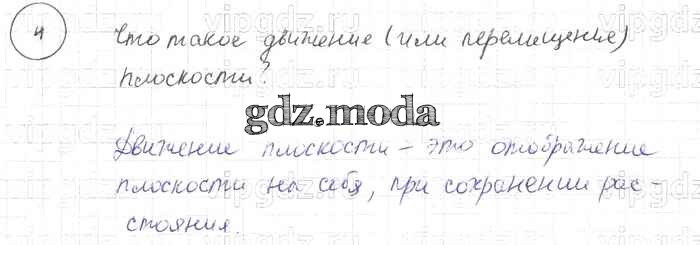 4 Что такое движение (или перемещенье)
плоскости?
gdz.moda
Движение плоскости - это отображение
плоскости на себя, при сохранении рас-
стояния.